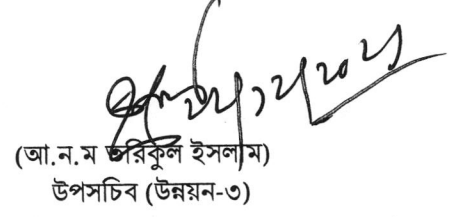 (আ.ন.ম তরিকুল ইসলাম)
উপসচিব (উন্নয়ন-৩)